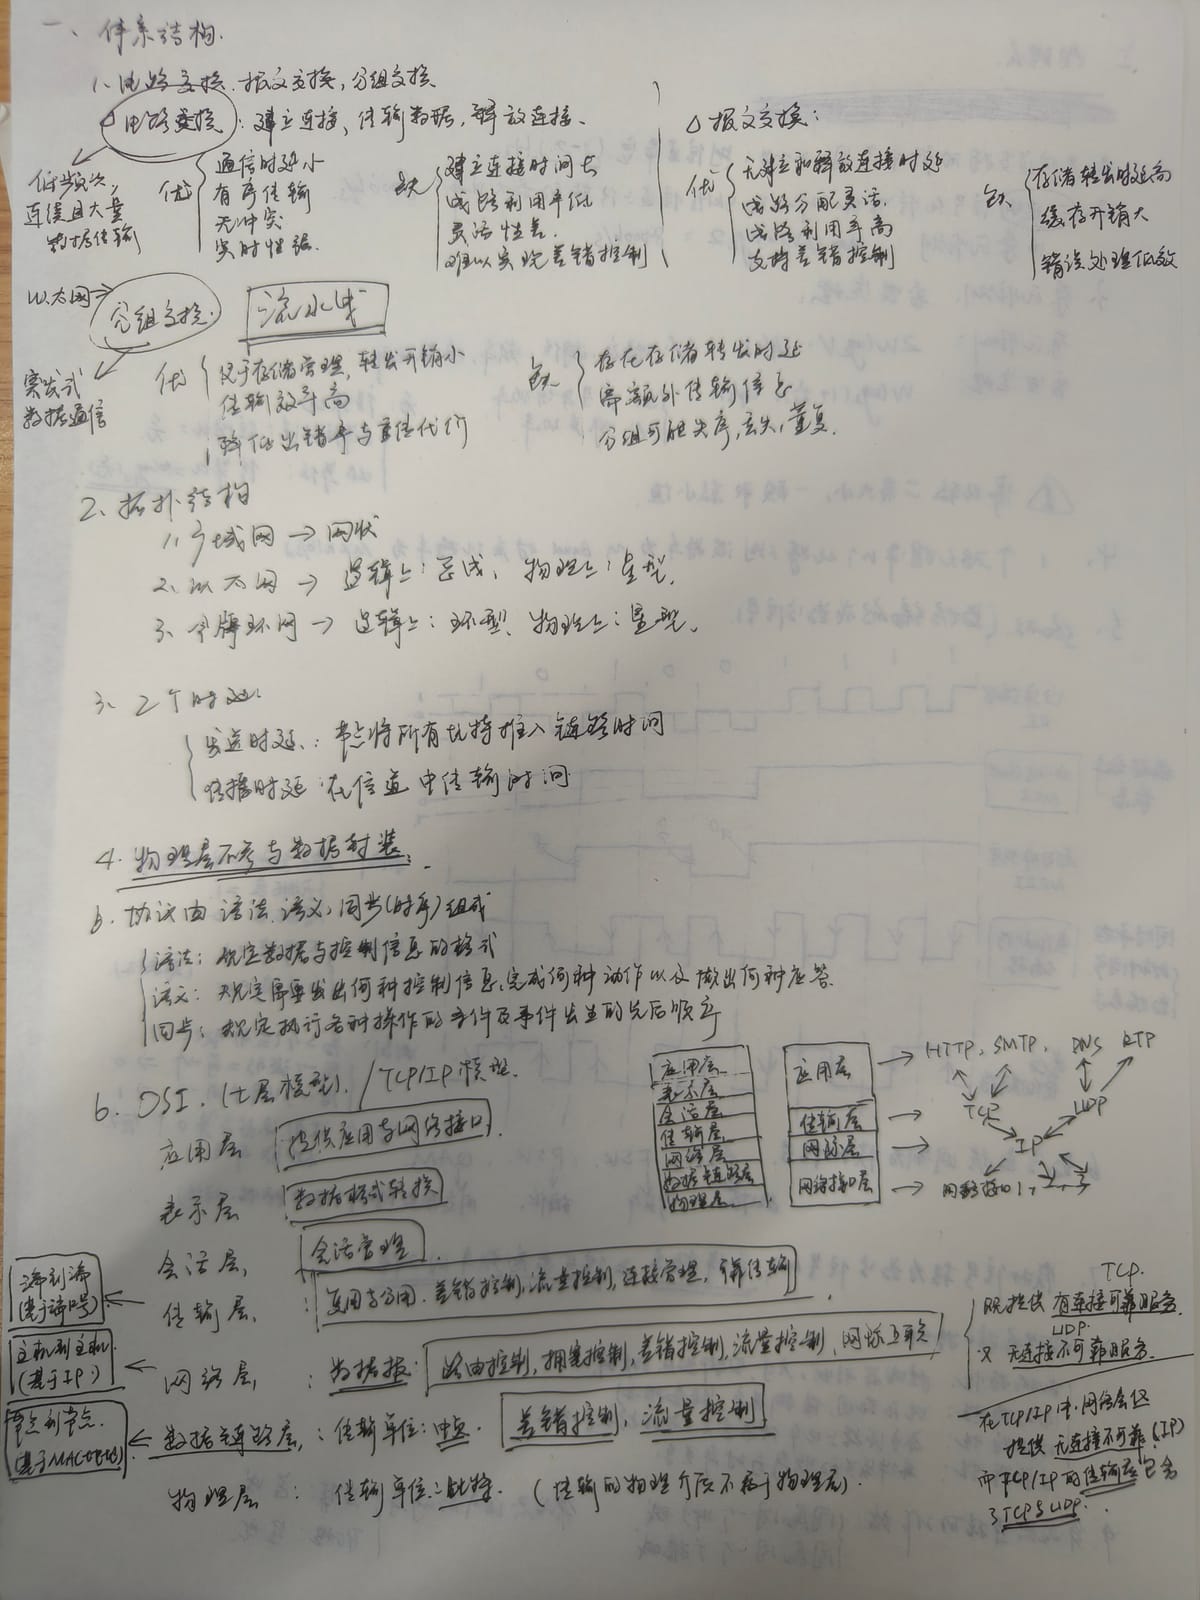 一、体系结构.
1. 电路交换、报文交换,分组交换
△电路交换:建立连接、传输数据,释放连接.
低频次,
连续且大量
数据传输
优
通信时延小
有序传输
无冲突
实时性强.
缺
建立连接时间长
线路利用率低
灵活性差.
难以实现差错控制
△报文交换:
优
无建立和释放连接时延
线路分配灵活.
线路利用率高
支持差错控制
缺
存储转发时延高
缓存开销大
错误处理低效
以太网
分组交换. 流水线
突发式
数据通信
优
便于存储管理,转发开销小
传输效率高
降低出错率与重传代价
缺
存在存储转发时延
需额外传输信息
分组可能失序,丢失,重复.
2. 拓扑结构
1. 广域网→网状
2. 以太网→逻辑上:总线,物理上:星型.
3. 令牌环网→逻辑上:环型,物理上:星型.
3. 2个时延.
发送时延:节点将所有比特推入链路时间
传播时延:在信道中传输时间
4. 物理层不参与数据封装.
5. 协议由语法、语义,同步(时序)组成
语法:规定数据与控制信息的格式
语义:规定需要发出何种控制信息,完成何种动作以及做出何种应答.
同步:规定执行各种操作的条件及事件发生的先后顺序
6. OSI.(七层模型)./TCP/IP模型.
应用层 提供应用与网络接口
表示层 数据格式转换
会话层, 会话管理
传输层, : 复用与分用.差错控制,流量控制,连接管理,可靠传输
网络层, : 数据报: 路由控制,拥塞控制,差错控制,流量控制,网际互联
数据链路层,:传输单位:帧. 差错控制,流量控制
物理层 : 传输单位:比特.(传输的物理介质不属于物理层).
端到端
(基于端口号)
主机到主机.
(基于IP)
节点到节点.
(基于MAC地址)
应用层
表示层
会话层
传输层
网络层
数据链路层
物理层
应用层→HTTP, SMTP, DNS RTP
传输层→TCP UDP
网际层→IP
网络接口层→网络接口1, 2, 3
TCP.
既提供有连接可靠服务.
UDP.
又无连接不可靠服务.
在TCP/IP中.网络层仅
提供无连接不可靠(IP)
而TCP/IP的传输层包含
了TCP与UDP.